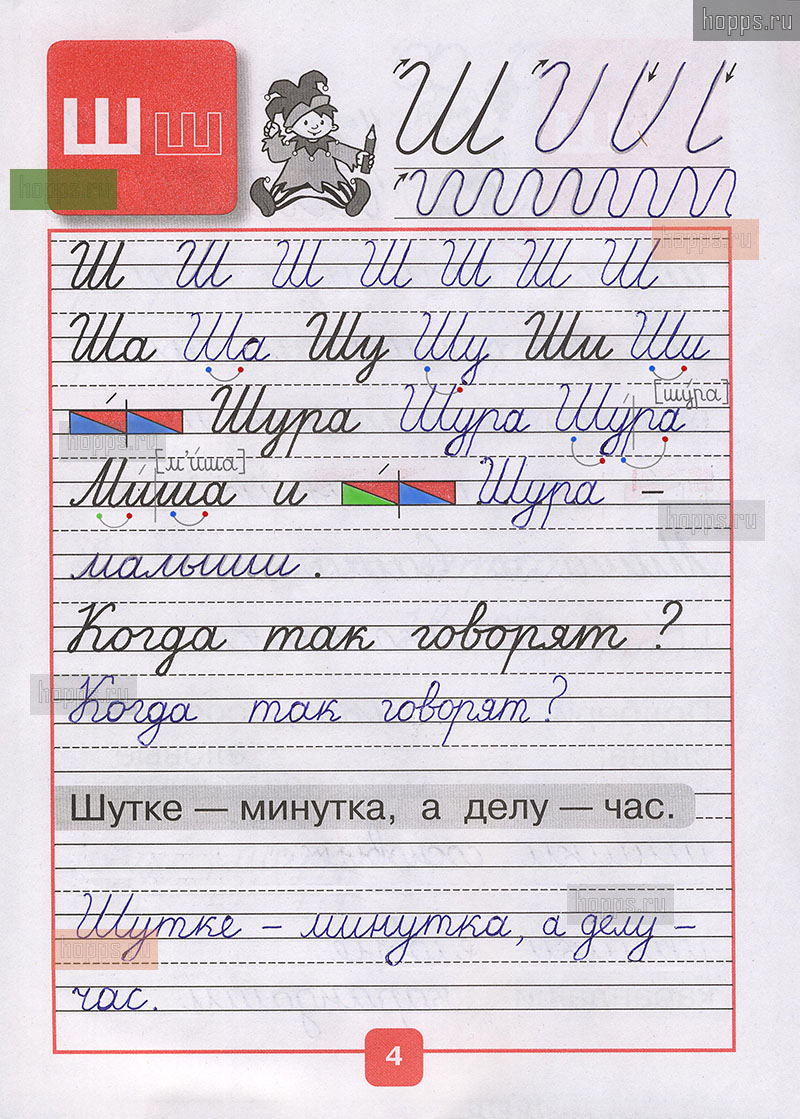 hopps.ru
Ш ш
Ш
hopps.ru
hopps.ru
Ш Ш Ш Ш Ш Ш Ш
Ша Ша Шу Шу Ши Ши
[шу́ра]
Шура Шура Шу́ра
hopps.ru
[м'и́ша]
Ми́ша и Шура –
hopps.ru
малыши.
Когда так говорят?
hopps.ru
Когда так говорят?
Шутке — минутка, а делу — час.
hopps.ru
Шутке – минутка, а делу –
hopps.ru
час.
4